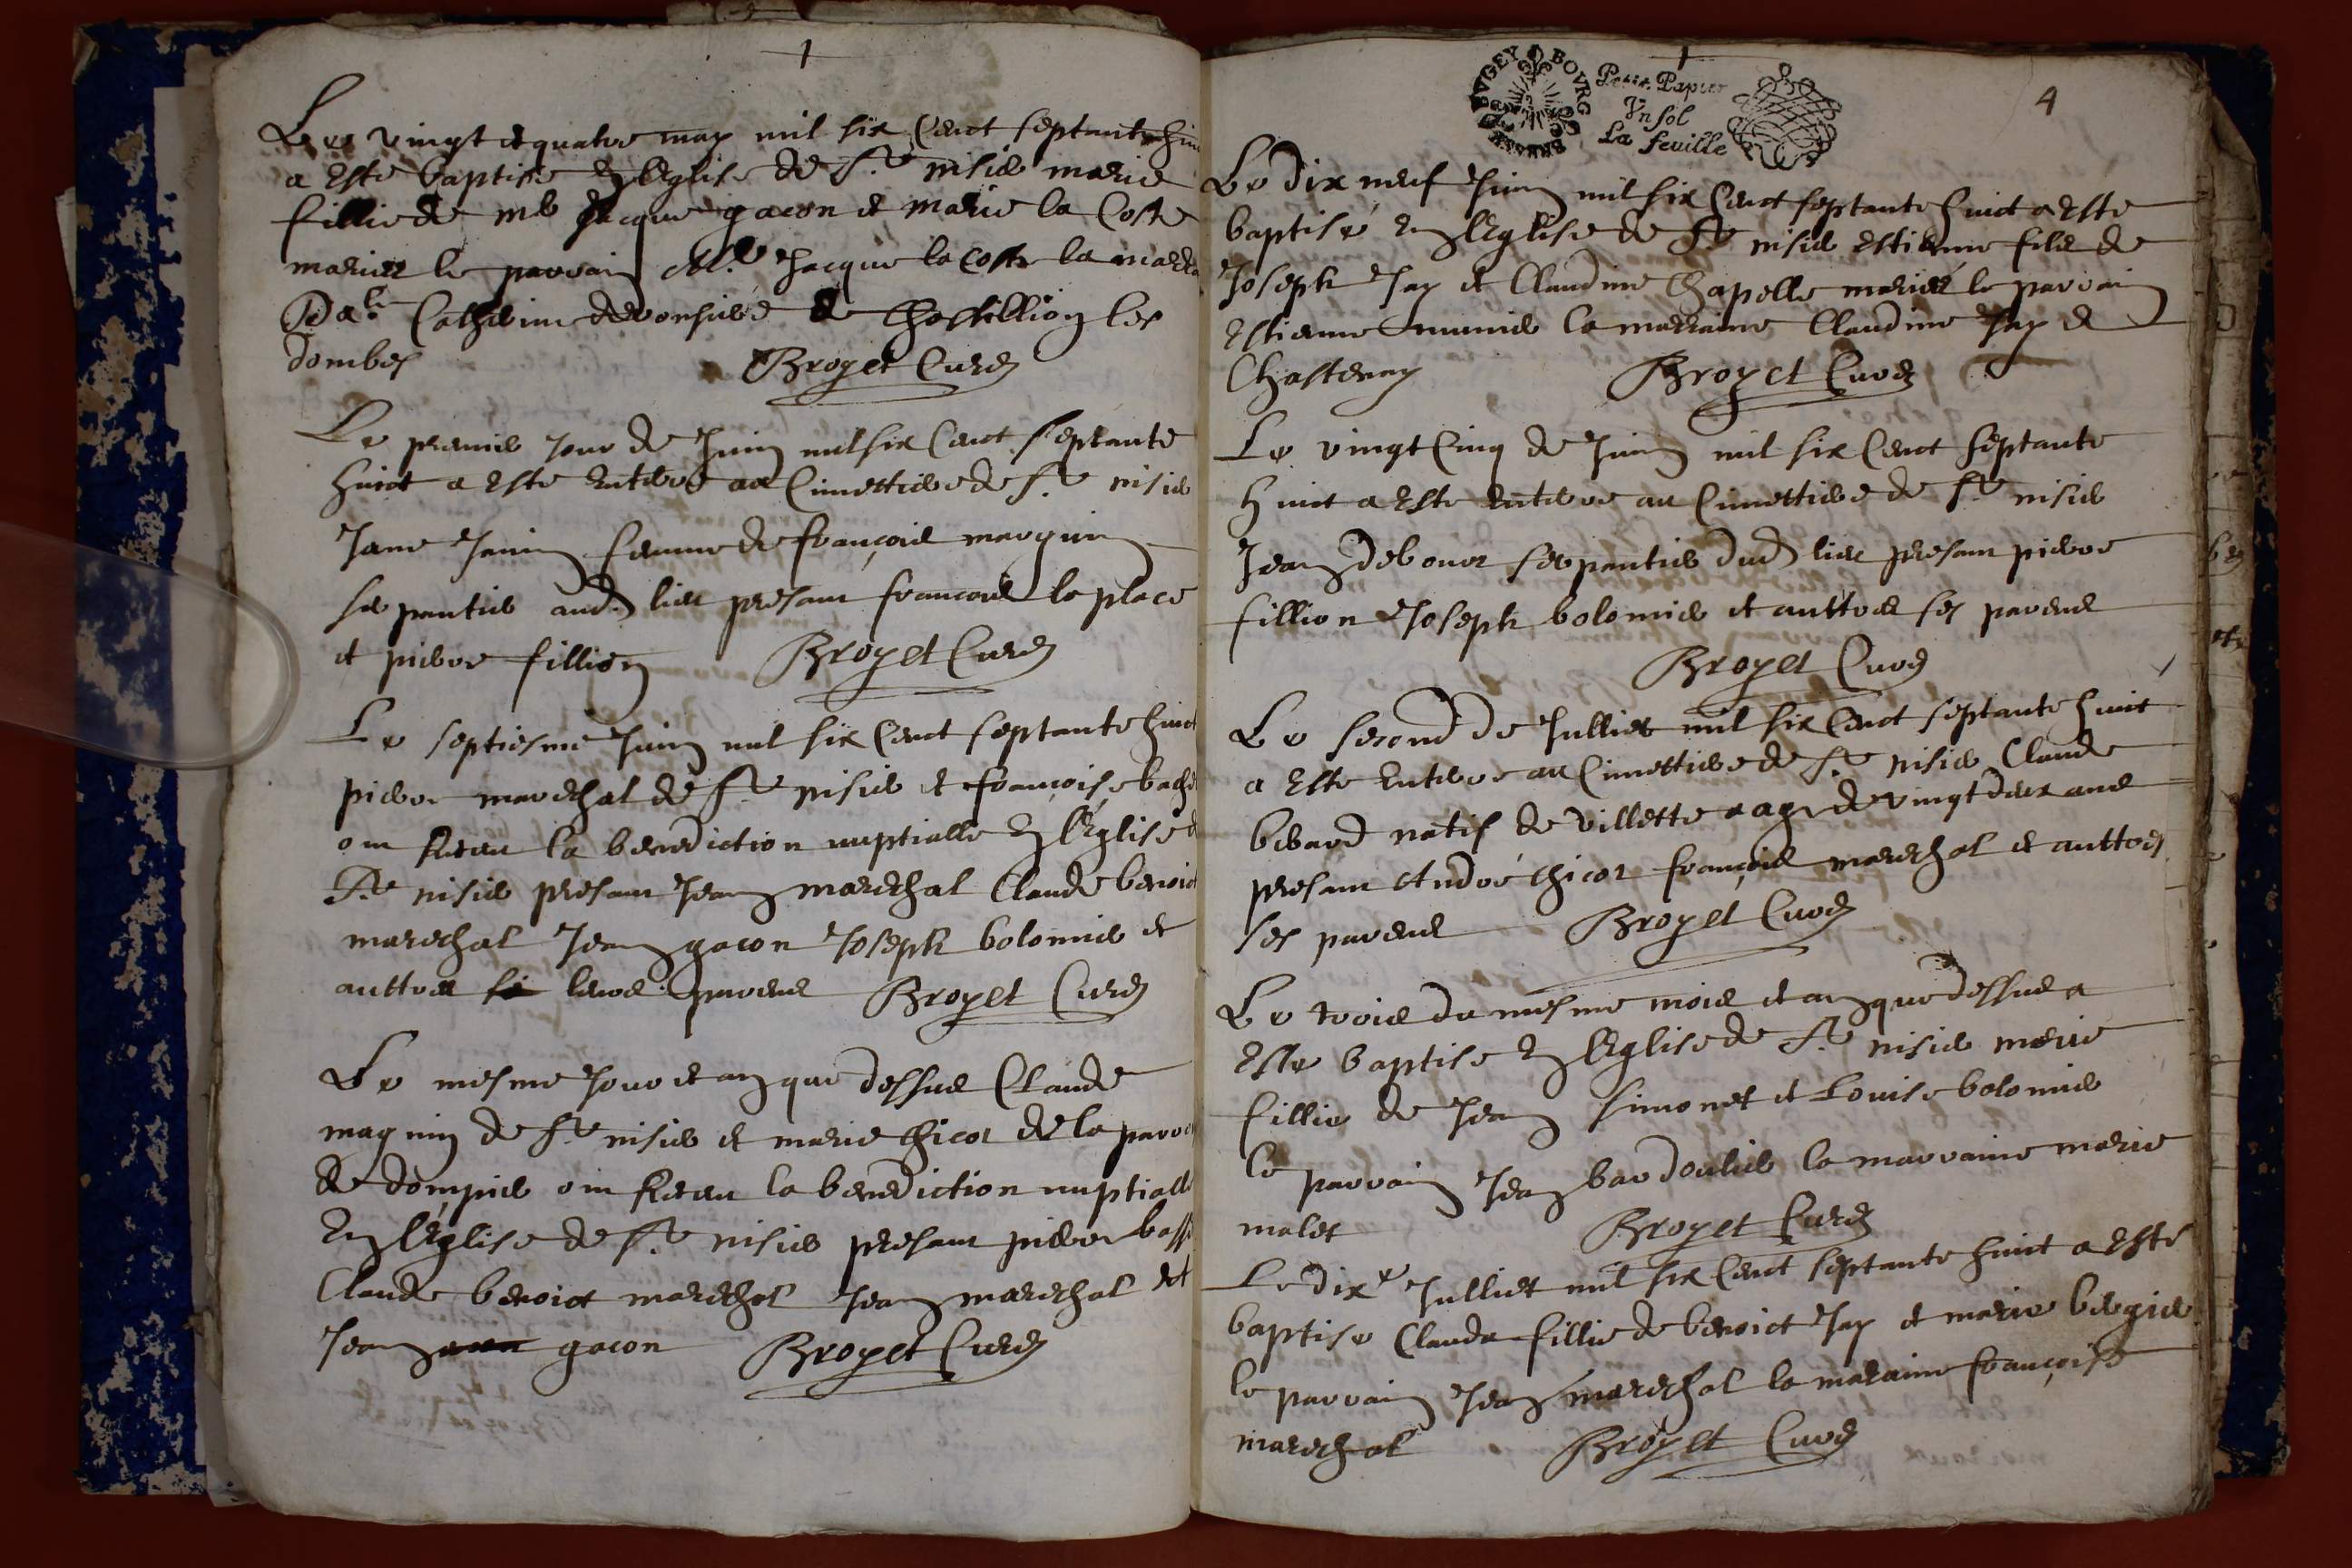 Le vingt et quatre may mil six Cent septante hui
a Este baptise En l'Eglise de St nisier marie
fillie de me Jacque gacon et marie la Coste
mariez le parrain Mr Jacque la Coste la marra
Dalle Catherine de Chastillion les
dombes Broyet Curé
Le premier Jour de Juin mil six Cent septante
huict a Este Enterre au Cimettiere de St nisier
Jane Janin femme de françois marguin
serpantier aud. lieu presant françois la place
et pierre fillion Broyet Curé
Le septiesme Juin mil six Cent septante huict
pierre marechal de St nisier et françoise
ont Receu la benediction nuptialle En l'Eglise d
St nisier presant Jean marechal Claude benoict
marechal Jean gacon Joseph bolomier et
auttres leurs parens Broyet Curé
Le mesme Jour et an que dessus Claude
maguin de St nisier et marie Chicot de la parro
de dompier ont Receu la benediction nuptiall
En l'Eglise de St nisier presant pierre
Claude benoict marechal Jean marechal et
Jean gacon Broyet Curé
BVGEY BOVRG
Petit Papier
Vn sol
La feuille
4
Le dix neuf Juin mil six Cent septante huict a Este
baptisé En l'Eglise de St nisier Estienne fils de
Joseph Jay et Claudine Chapelle mariez le parrain
Estienne munier la marraine Claudine Jay de
Chastenay Broyet Curé
Le vingt Cinq de Juin mil six Cent septante
huict a Este Enterre au Cimettiere de St nisier
Jean debouet serpantier dud. lieu presant pierre
fillion Joseph bolomier et auttres ses parens
Broyet Curé
Le second de Julliet mil six Cent septante huict
a Este Enterre au Cimettiere de St nisier Claude
berard natif de villette age de vingt deux ans
presant André Chicot françois marechal et auttres
ses parens Broyet Curé
Le trois du mesme mois et an que dessus a
Este baptise En l'Eglise de St nisier marie
fillie de Jean simonet et Louise bolomier
le parrain Jean bardoulier la marraine marie
malet Broyet Curé
Le dixe Julliet mil six Cent septante huict a Esté
baptise Clauda fillie de benoict Jay et marie bergier
le parrain Jean marechal la maraine françoise
marechal Broyet Curé